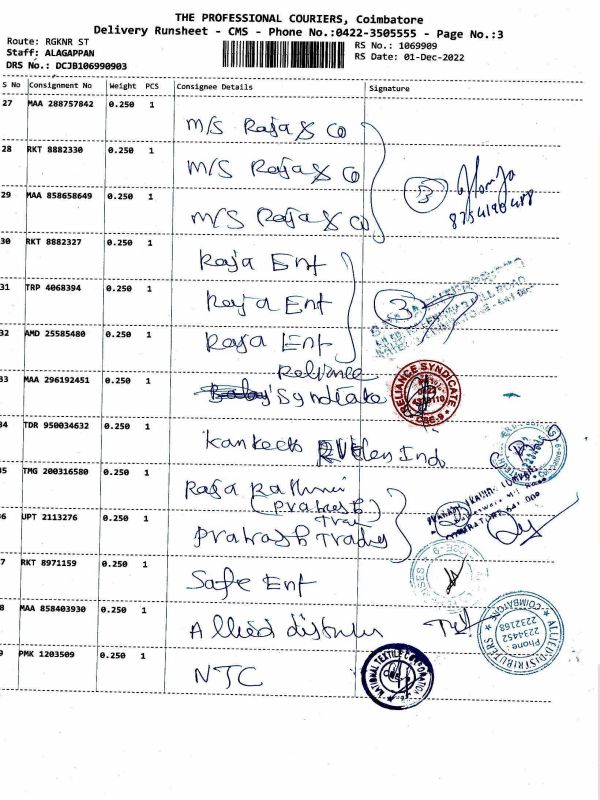 THE PROFESSIONAL COURIERS, Coimbatore
Delivery Runsheet - CMS - Phone No.:0422-3505555 - Page No.:3
Route: RGKNR ST
Staff: ALAGAPPAN
DRS No.: DCJB106990903
RS No.: 1069909
RS Date: 01-Dec-2022
S No Consignment No Weight PCS Consignee Details Signature
27 MAA 288757842 0.250 1 M/S Raja & Co
28 RKT 8882330 0.250 1 M/S Raja & Co
29 MAA 858658649 0.250 1 M/S Raja & Co
3
8754190488
30 RKT 8882327 0.250 1 Raja Ent
31 TRP 4068394 0.250 1 Raja Ent
3
32 AMD 25585480 0.250 1 Raja Ent
33 MAA 296192451 0.250 1 Reliance
Syndicate
RELIANCE SYNDICATE
CBE-9
34 TDR 950034632 0.250 1 Ind
35 TMG 200316580 0.250 1 Raja
(Prakash
6 UPT 2113276 0.250 1 Prakash Trades
7 RKT 8971159 0.250 1 Safe Ent
8 MAA 858403930 0.250 1 Allied
ALLIED DISTRIBUTERS
COIMBATORE
Phone :
2234452
2232168
9 PMK 1203509 0.250 1 NTC
NATIONAL TEXTILE CORPORATION